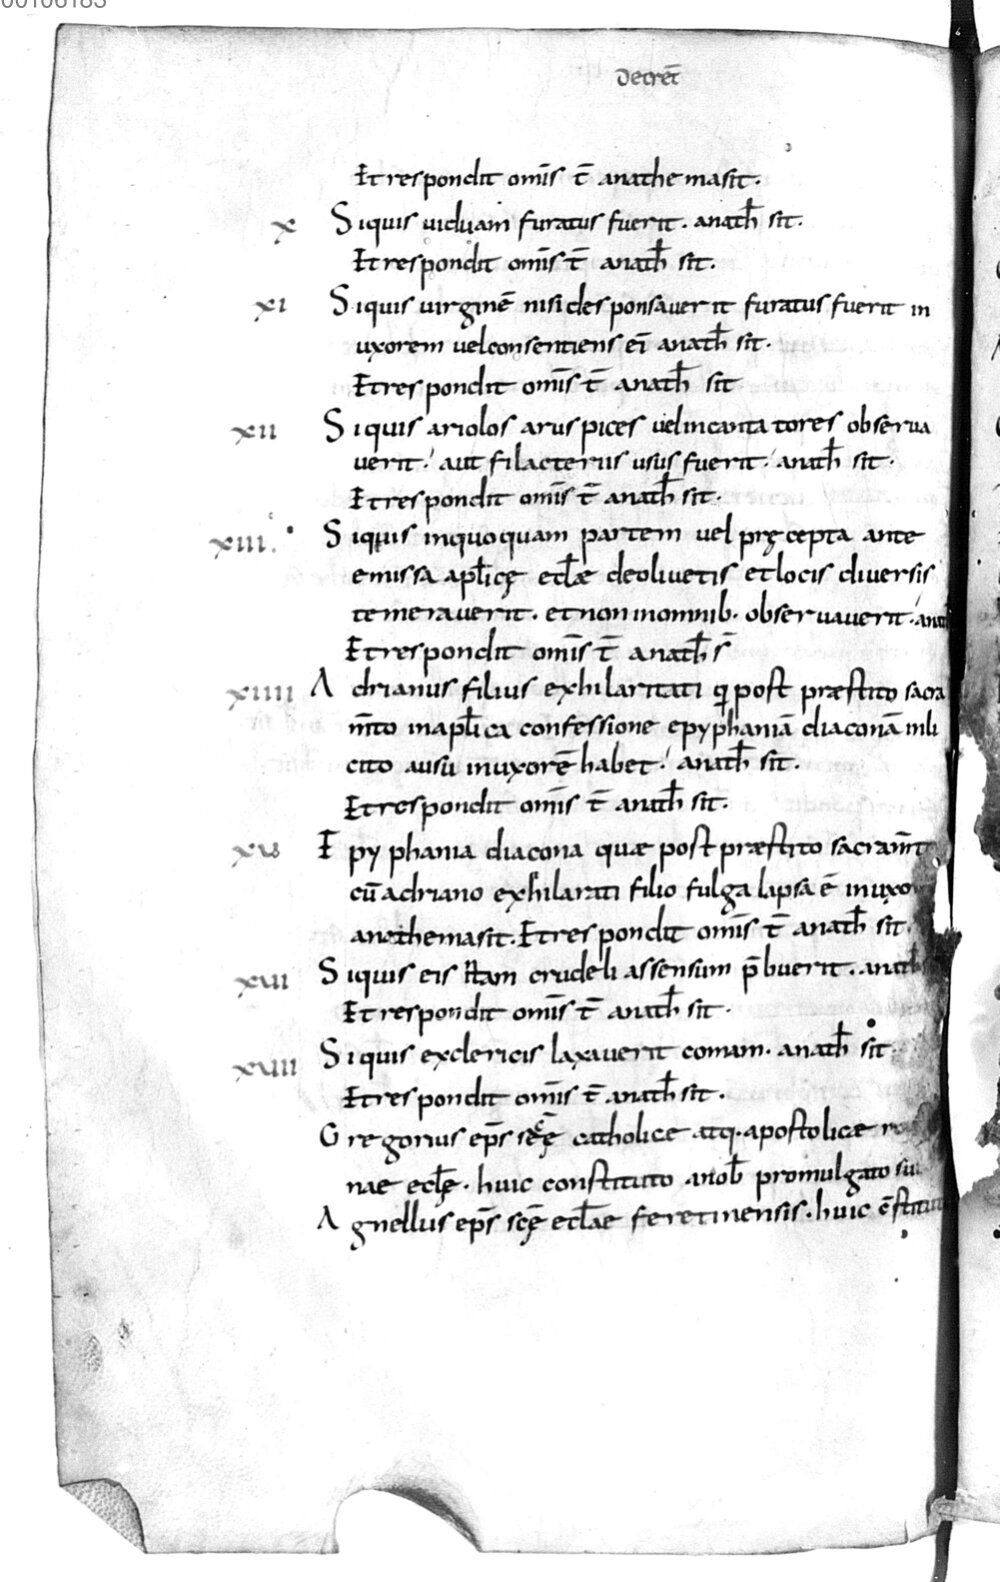 00106183
Decret̄
Et respondit om̄s t̄ anathema sit.
X Siquis uiduam furatus fuerit. anath̄ sit.
Et respondit om̄s t̄ anath̄ sit.
XI Siquis uirginē nisi desponsauerit furatus fuerit in
uxorem uel consentiens ei anath̄ sit.
Et respondit om̄s t̄ anath̄ sit
XII Siquis ariolos aruspices uel incantatores obserua
uerit. aut filacteriis usus fuerit. anath̄ sit.
Et respondit om̄s t̄ anath̄ sit.
XIII. Siquis inquoquam partem uel pręcepta ante
emissa apl̄icę eccl̄æ deoliuetis et locis diuersis
temerauerit. et non in omnib. obseruauerit. anat
Et respondit om̄s t̄ anath̄ s̄
XIIII Adrianus filius exhilaritati q post præstito sacra
m̄to in apl̄ica confessione epyphaniā diaconā inli
cito ausu in uxorē habet. anath̄ sit.
Et respondit om̄s t̄ anath̄ sit.
XV Epyphania diacona quæ post præstito sacram̄t
cū adriano exhilarati filio fulga lipsa ē in uxo
anathema sit. Et respondit om̄s t̄ anath̄ sit.
XVII Siquis eis tam crudeli assensum p̄buerit. anath̄
Et respondit om̄s t̄ anath̄ sit.
XVIII Siquis exclericis laxauerit comam. anath̄ sit.
Et respondit om̄s t̄ anath̄ sit.
Gregorius ep̄s sc̄ę catholice atq. apostolicæ ro
nae eccl̄ę. huic constituto anob̄ promulgato su
Agnellus ep̄s sc̄ę eccl̄ae feretinensis. huic c̄stitut